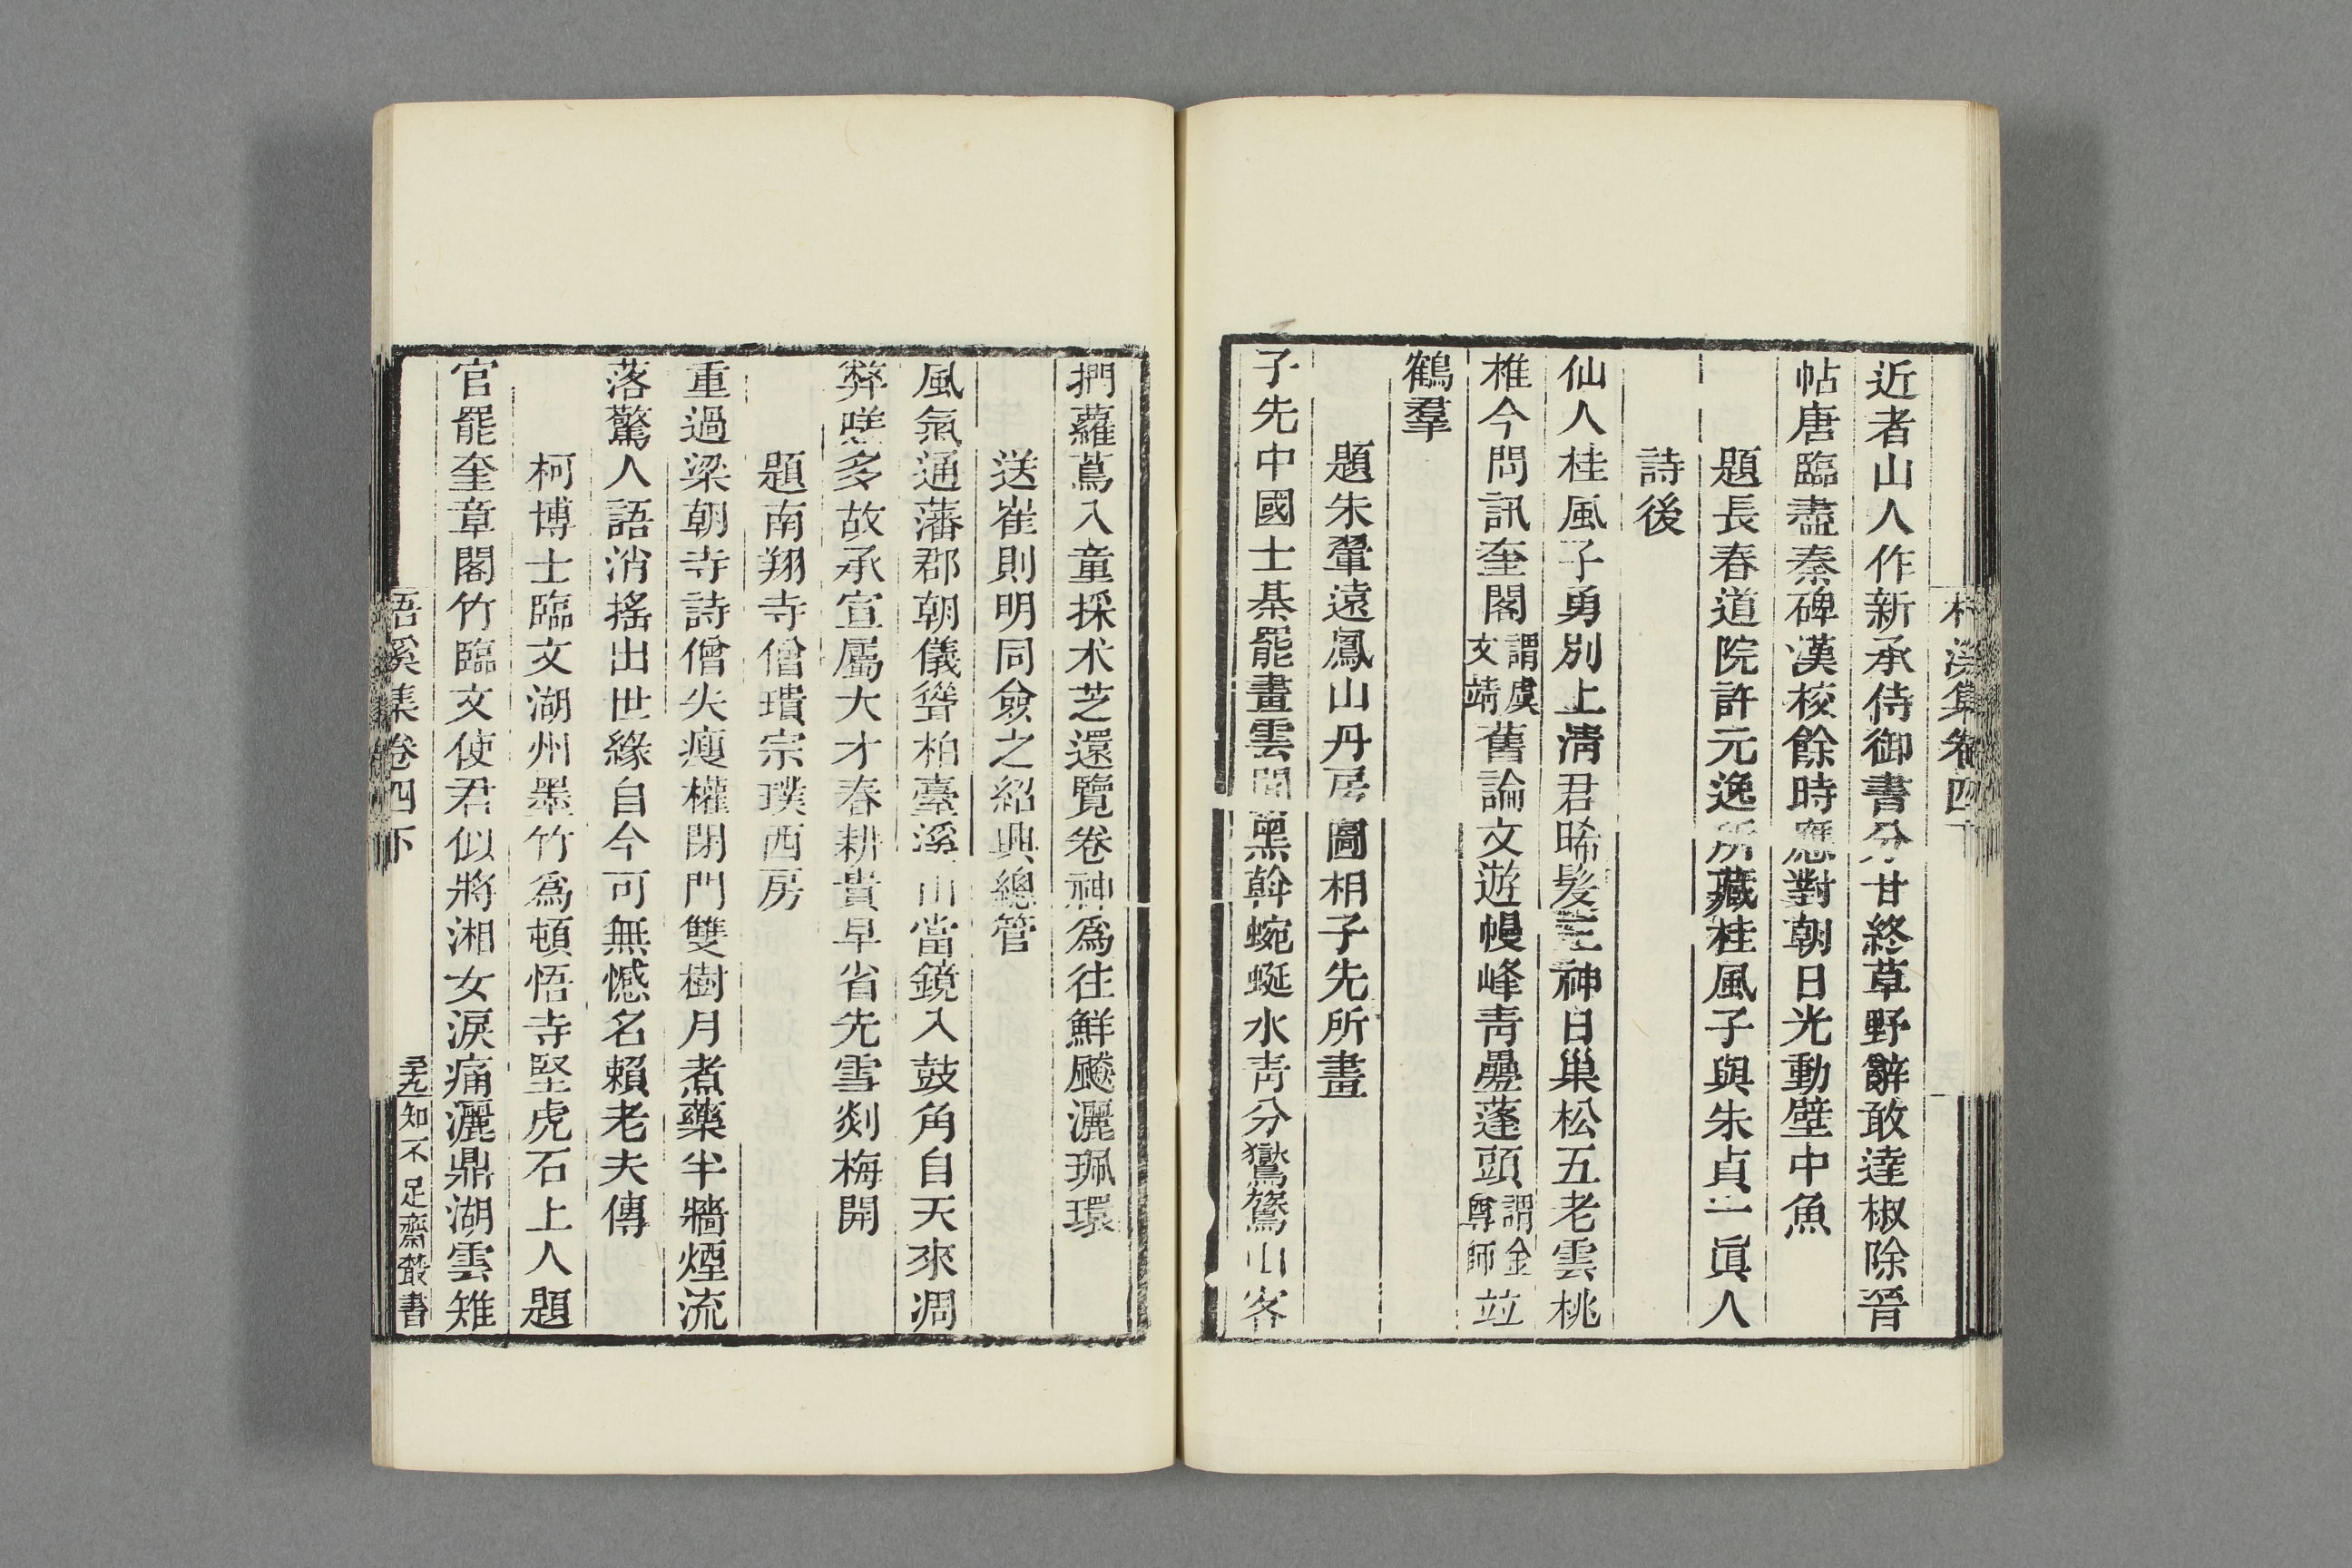 梧溪集卷四下
近者山人作新承侍御書分甘終草野辭敢達椒除晉
帖唐臨盡秦碑漢校餘時應對朝日光動壁中魚
題長春道院許元逸所藏桂風子與朱貞一眞人
詩後
仙人桂風子勇別上淸君晞髮三神日巢松五老雲桃
椎今問訊奎閣謂虞文靖舊論文遊幔峰靑疊蓬頭謂金尊師竝
鶴羣
題朱翬遠鳳山丹房圖相子先所畫
子先中國士棊罷畫雲間黑榦蜿蜒水靑分鸑鷟山客
捫蘿蔦入童採朮芝還覽卷神爲往鮮飈灑珮環
送崔則明同僉之紹興總管
風氣通藩郡朝儀聳柏臺溪山當鏡入鼓角自天來凋
弊嗟多故承宣屬大才春耕貴早省先雪剡梅開
題南翔寺僧璝宗璞西房
重過梁朝寺詩僧失瘦權閉門雙樹月煮藥半牆煙流
落驚人語消搖出世緣自今可無憾名賴老夫傳
柯博士臨文湖州墨竹爲頓悟寺堅虎石上人題
官罷奎章閣竹臨文使君似將湘女淚痛灑鼎湖雲雉
梧溪集卷四下
知不足齋叢書